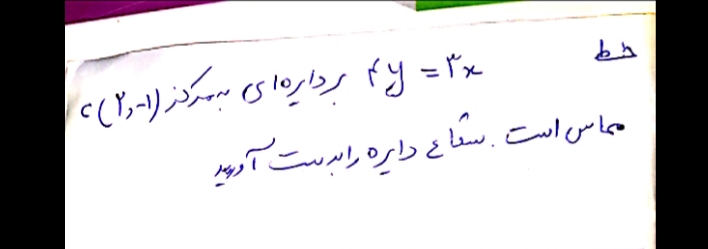 خط ۴y = ۳x بر دایره‌ای به مرکز c(۲,-۱)
مماس است. شعاع دایره را بدست آورید